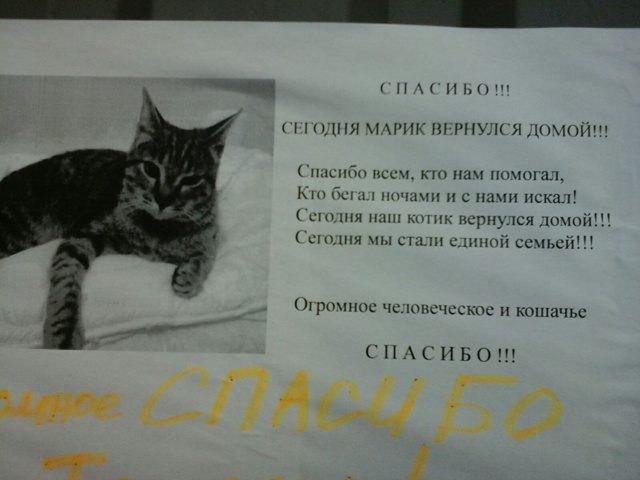 С П А С И Б О !!!
СЕГОДНЯ МАРИК ВЕРНУЛСЯ ДОМОЙ!!!
Спасибо всем, кто нам помогал,
Кто бегал ночами и с нами искал!
Сегодня наш котик вернулся домой!!!
Сегодня мы стали единой семьей!!!
Огромное человеческое и кошачье
С П А С И Б О !!!
СПАСИБО